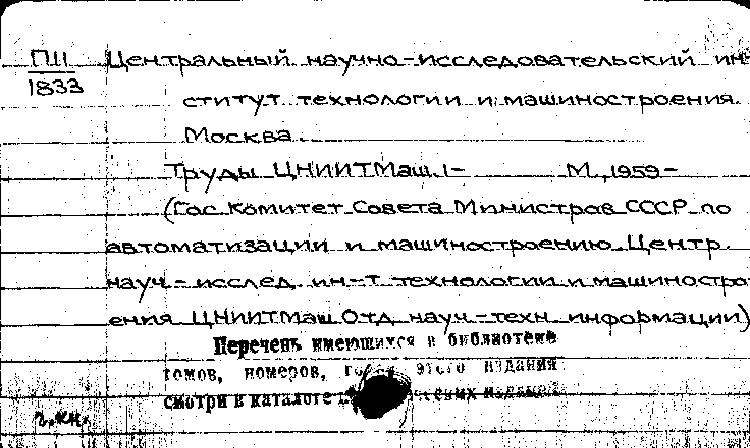 П11 Центральный научно-исследовательский ин-
1833
ститут технологии и машиностроения.
Москва.
Труды ЦНИИТМаш. 1- М., 1959-
(Гос. комитет Совета Министров СССР по
автоматизации и машиностроению. Центр.
науч.-исслед. ин-т технологии и машиностро-
ения ЦНИИТМаш. Отд. науч.-техн. информации)
Перечень имеющихся в библиотеке
томов, номеров, этого издания
смотри в каталоге
г. кн.